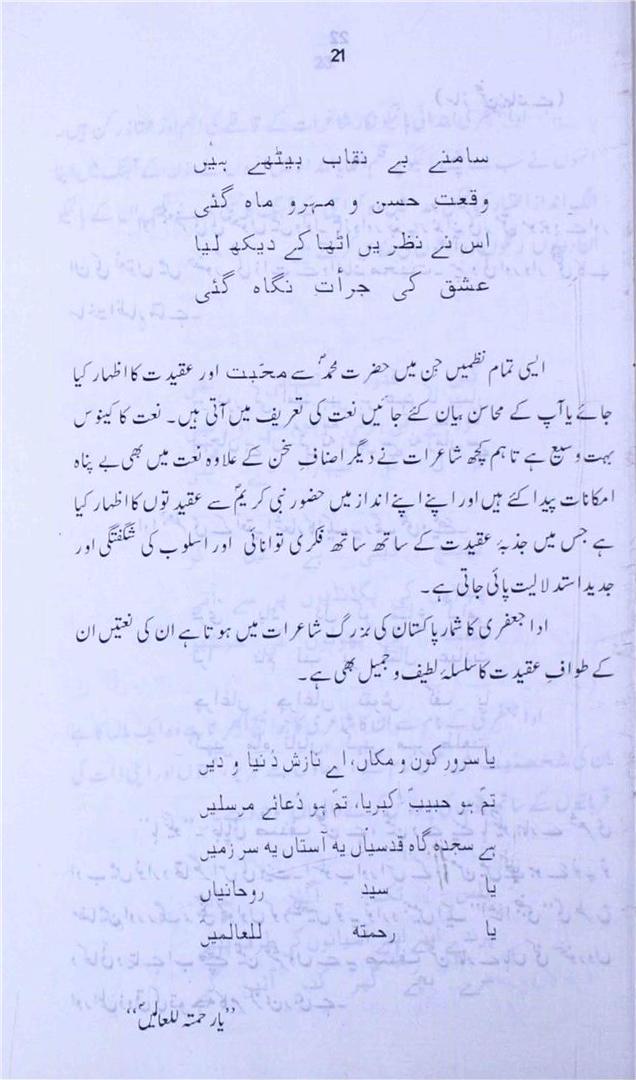 21
سامنے بے نقاب بیٹھے ہیں
وقعتِ حسن و مہرو ماہ گئی
اس نے نظریں اٹھا کے دیکھ لیا
عشق کی جرأتِ نگاہ گئی
ایسی تمام نظمیں جن میں حضرت محمدؐ سے محبّت اور عقیدت کا اظہار کیا
جائے یا آپ کے محاسن بیان کئے جائیں نعت کی تعریف میں آتی ہیں۔ نعت کا کینوس
بہت وسیع ہے تاہم کچھ شاعرات نے دیگر اصنافِ سخن کے علاوہ نعت میں بھی بے پناہ
امکانات پیدا کئے ہیں اور اپنے اپنے انداز میں حضور نبی کریمؐ سے عقیدتوں کا اظہار کیا
ہے جس میں جذبۂ عقیدت کے ساتھ ساتھ فکری توانائی اور اسلوب کی شگفتگی اور
جدید استدلالیت پائی جاتی ہے۔
ادا جعفری کا شمار پاکستان کی بزرگ شاعرات میں ہوتا ہے ان کی نعتیں ان
کے طوافِ عقیدت کا سلسلۂ لطیف و جمیل بھی ہے۔
یا سرور کون و مکاں، اے نازش دُنیا و دیں
تم ہو حبیبؐ کبریا، تم ہو دُعائے مرسلیں
ہے سجدہ گاہ قدسیاں یہ آستاں یہ سر زمیں
یا سید روحانیاں
یا رحمتہ للعالمیں
”یا رحمتہ للعالمیںؐ“